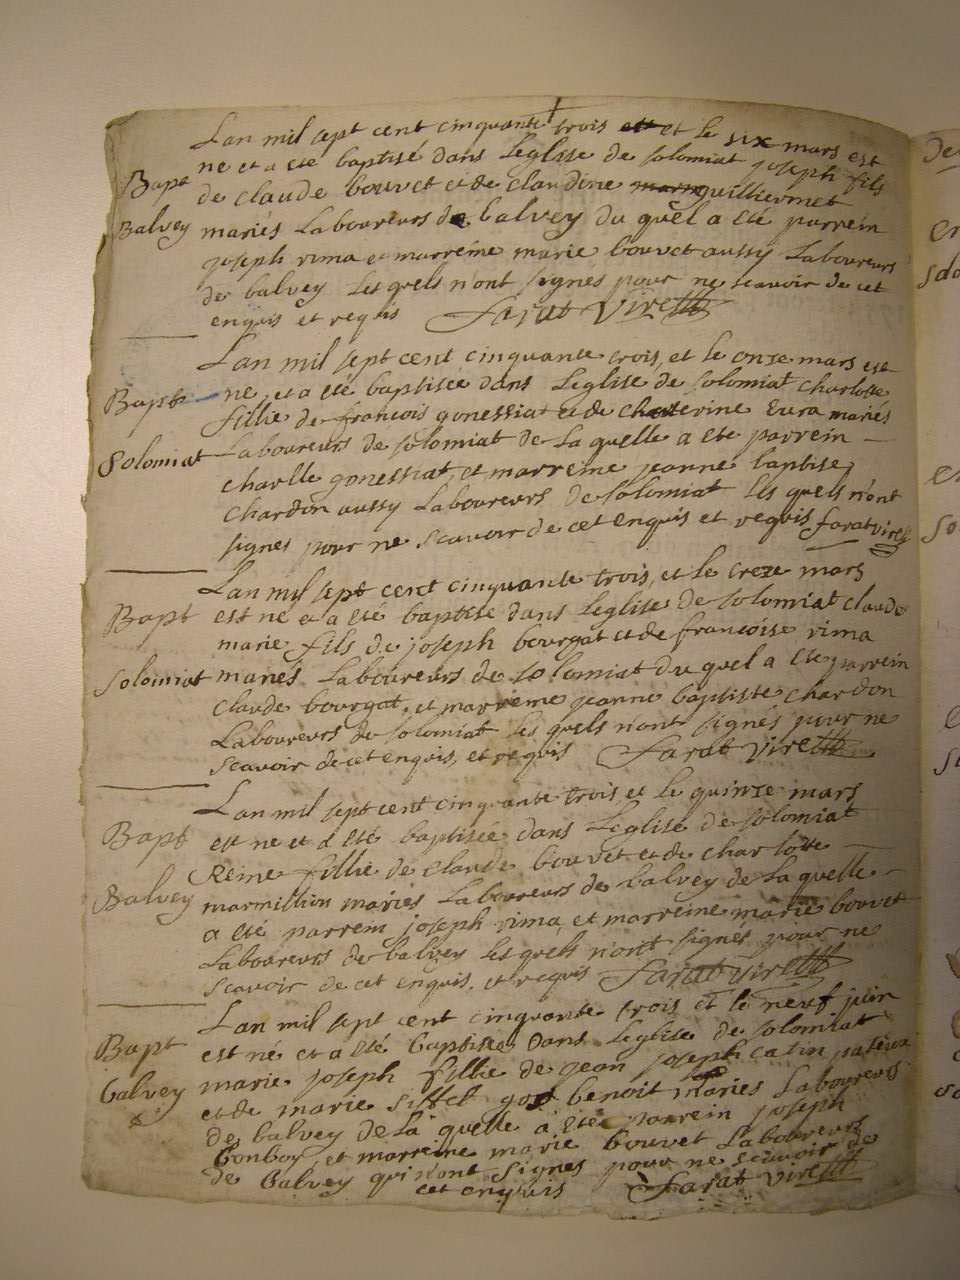 Lan mil sept cent cinquante trois et le six mars est
Bapt ne et a ete baptisé dans Leglise de solomiat joseph fils
de claude bouvet et de claudine guilliermet
Balvey mariés Laboureurs de balvey du quel a eté parrein
joseph rima et marreine marie bouvet aussy Laboureurs
de balvey Les quels n'ont signes pour ne scavoir de cet
enquis et requis Farat Virett
Lan mil sept cent cinquante trois, et le onze mars est
Bapt ne, et a eté baptisée dans Leglise de solomiat charlotte
fillie de francois gonessiat et de chaterine Eura mariés
Solomiat Laboureurs de solomiat de La quelle a ete parrein
charlle gonessiat, et marreine jeanne baptise
chardon aussy Laboureurs de solomiat Les quels n'ont
signes pour ne scavoir de cet enquis et requis farat viret
Lan mil sept cent cinquante trois, et le treze mars
Bapt est ne et a eté baptise dans Leglise de solomiat claude
marie fils de joseph bourgat et de francoise rima
Solomiat mariés Laboureurs de solomiat du quel a ete parrein
claude bourgat, et marreine jeanne baptiste chardon
Laboureurs de solomiat Les quels n'ont signés pour ne
scavoir de cet enquis, et requis Farat Virett
Lan mil sept cent cinquante trois et le quinze mars
Bapt est ne et a eté baptisée dans Leglise de solomiat
Reine fillie de claude bouvet et de charlotte
Balvey marmillion mariés Laboureurs de balvey de La quelle
a eté parrein joseph rima, et marreine marie bouvet
Laboureurs de balvey Les quels n'ont signés pour ne
scavoir de cet enquis, et requis Farat Virett
Lan mil sept cent cinquante trois et le neuf juin
Bapt est né et a eté baptisée dans Leglise de solomiat
Balvey marie joseph fillie de jean joseph catin
et de marie benoit maries Laboureurs
de balvey de La quelle a eté parrein joseph
bonboy et marreine marie bouvet Laboureurs
de Balvey qui n'ont signes pour ne scavoir de
cet enquis Farat Virett